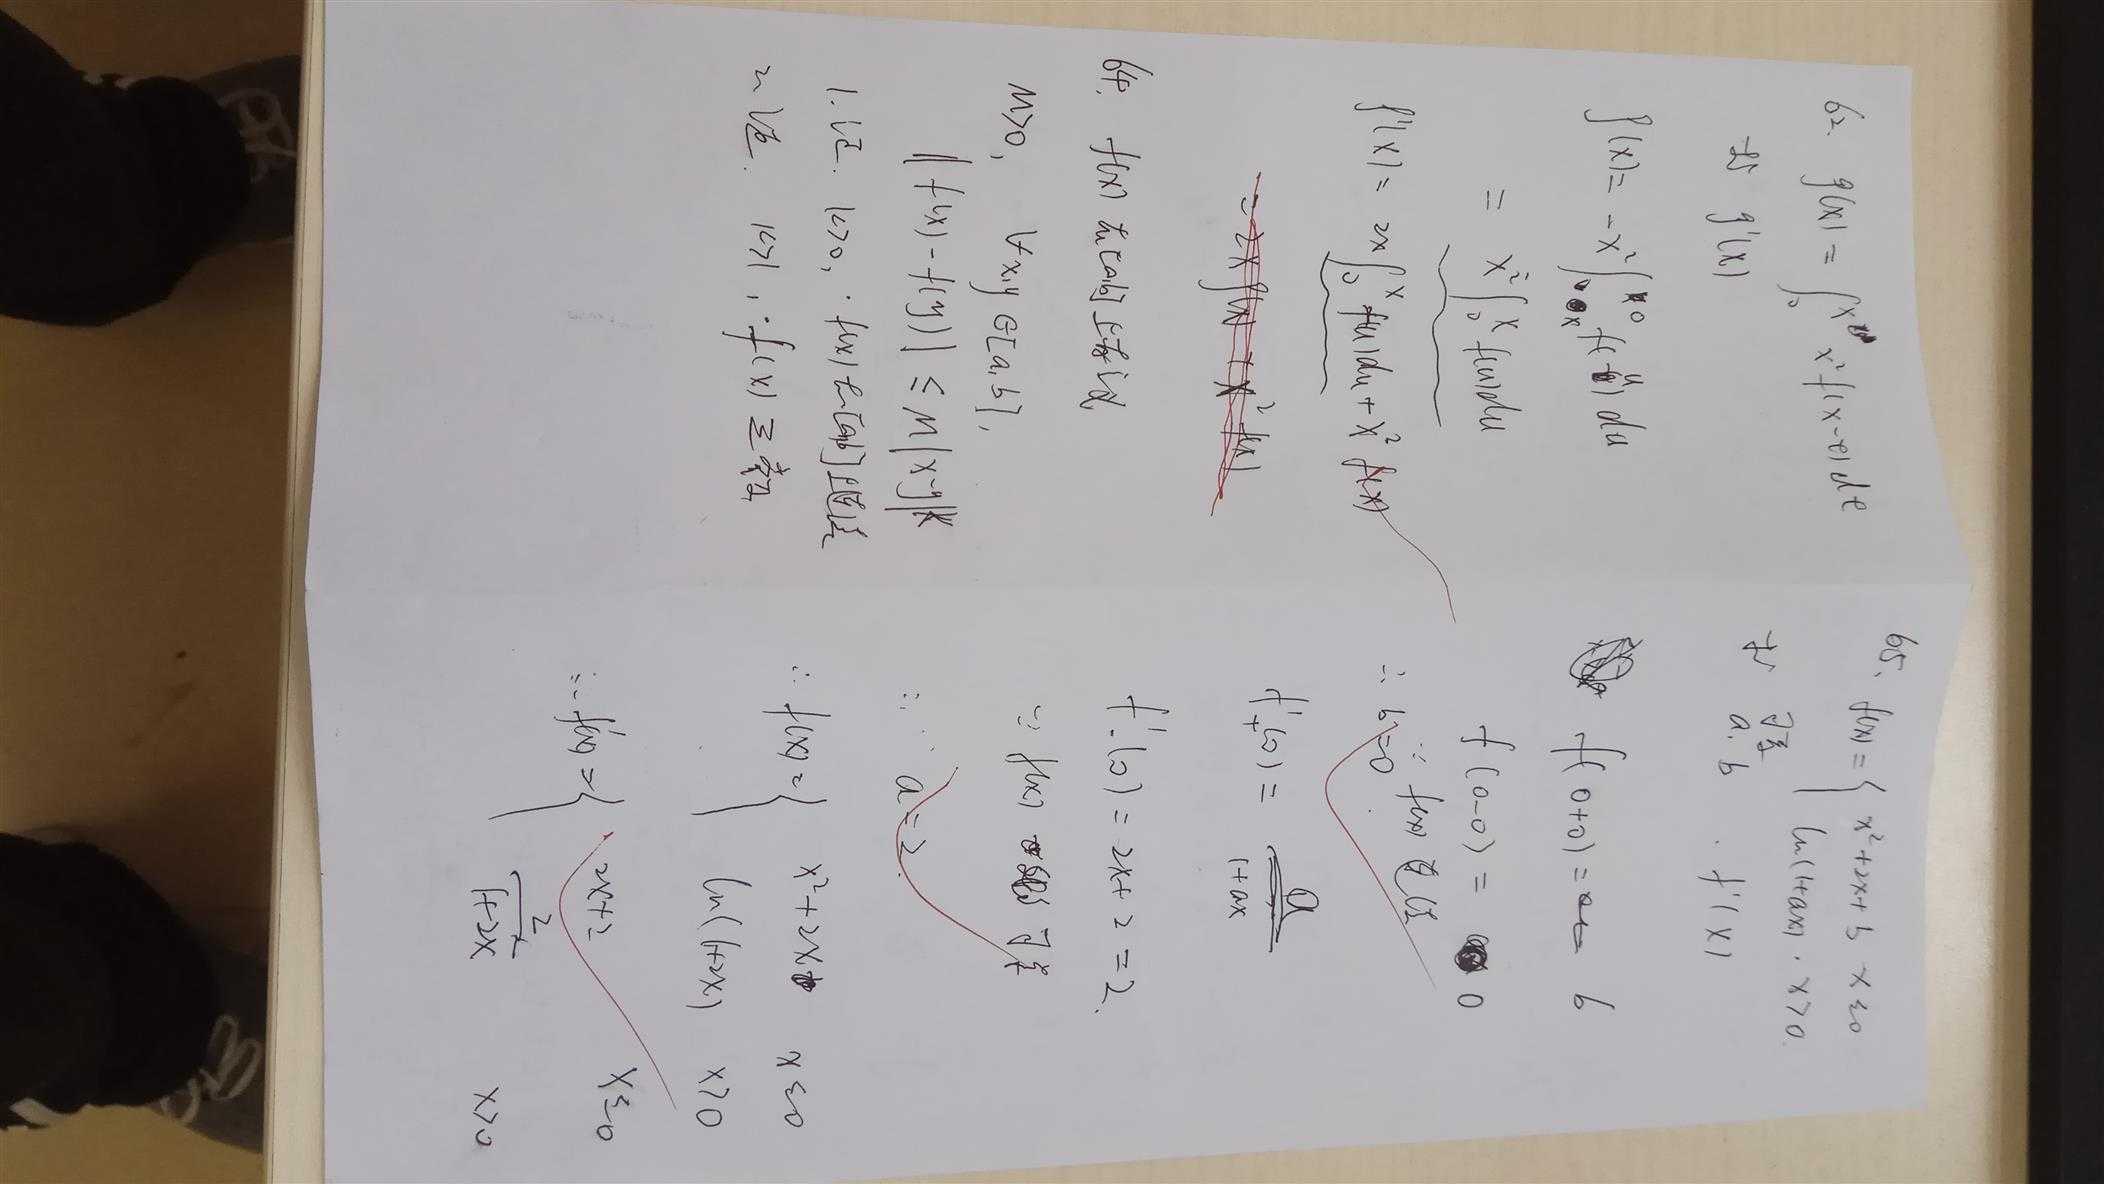 62. g(x) = ∫₀ˣ x² f(x-t) dt
求 g'(x)
g(x) = -x² ∫ₓ⁰ f(u) du
= x² ∫₀ˣ f(u) du
g'(x) = 2x ∫₀ˣ f(u) du + x² f(x)
64. f(x) 在[a,b]上有定义
M>0, ∀x,y∈[a,b],
|f(x) - f(y)| ≤ M|x-y|ᵏ
1. 证. k>0, f(x) 在[a,b]上连续
2. 证. k>1, f(x) ≡ 常数
65. f(x) = { x²+2x+b x≤0
ln(1+ax). x>0.
求 a, b . f'(x)
可导
f(0+0) = b
f(0-0) = 0
∵ f(x) 连续
∴ b=0.
f'₊(0) = a
1+ax
f'₋(0) = 2x+2 = 2.
∵ f(x) 可导
∴ a = 2.
∴ f(x) = { x²+2x x≤0
ln(1+2x) x>0
∴ f'(x) = { 2x+2 x≤0
2/(1+2x) x>0